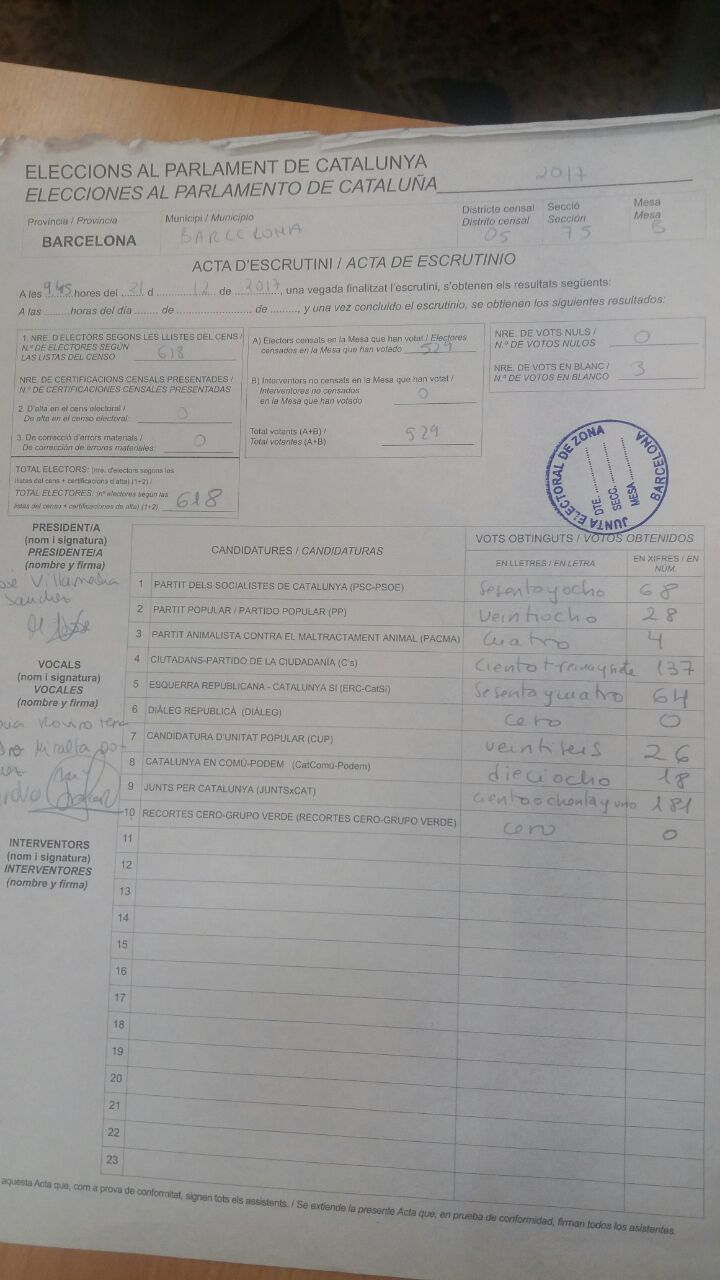 ELECCIONS AL PARLAMENT DE CATALUNYA
ELECCIONES AL PARLAMENTO DE CATALUÑA 2017
Provincia / Provincia
BARCELONA
Municipi / Municipio
BARCELONA
Districte censal
Distrito censal
05
Secció
Sección
75
Mesa
Mesa
B
ACTA D'ESCRUTINI / ACTA DE ESCRUTINIO
A les 9:45 hores del 21 d 12 de 2017, una vegada finalitzat l'escrutini, s'obtenen els resultats següents:
A las ........horas del día ....... de .................... de.........., y una vez concluido el escrutinio, se obtienen los siguientes resultados:
1. NRE. D'ELECTORS SEGONS LES LLISTES DEL CENS /
N.º DE ELECTORES SEGÚN
LAS LISTAS DEL CENSO 618
NRE. DE CERTIFICACIONS CENSALS PRESENTADES /
N.º DE CERTIFICACIONES CENSALES PRESENTADAS
2. D'alta en el cens electoral /
De alta en el censo electoral: 0
3. De correcció d'errors materials /
De corrección de errores materiales: 0
TOTAL ELECTORS: (nre. d'electors segons les
llistes del cens + certificacions d'alta) (1+2) /
TOTAL ELECTORES: (nº electores según las
listas del censo + certificaciones de alta) (1+2) 618
A) Electors censats en la Mesa que han votat / Electores
censados en la Mesa que han votado 529
B) Interventors no censats en la Mesa que han votat /
Interventores no censados
en la Mesa que han votado 0
Total votants (A+B) /
Total votantes (A+B) 529
NRE. DE VOTS NULS /
N.º DE VOTOS NULOS 0
NRE. DE VOTS EN BLANC /
N.º DE VOTOS EN BLANCO 3
JUNTA ELECTORAL DE ZONA
BARCELONA
DTE. ..........
SECC. ..........
MESA ..........
PRESIDENT/A
(nom i signatura)
PRESIDENTE/A
(nombre y firma)
Sánchez
VOCALS
(nom i signatura)
VOCALES
(nombre y firma)
INTERVENTORS
(nom i signatura)
INTERVENTORES
(nombre y firma)
CANDIDATURES / CANDIDATURAS
VOTS OBTINGUTS / VOTOS OBTENIDOS
EN LLETRES / EN LETRA
EN XIFRES / EN NÚM.
1 PARTIT DELS SOCIALISTES DE CATALUNYA (PSC-PSOE) Sesenta y ocho 68
2 PARTIT POPULAR / PARTIDO POPULAR (PP) veintiocho 28
3 PARTIT ANIMALISTA CONTRA EL MALTRACTAMENT ANIMAL (PACMA) cuatro 4
4 CIUTADANS-PARTIDO DE LA CIUDADANÍA (C's) ciento treinta y siete 137
5 ESQUERRA REPUBLICANA - CATALUNYA SÍ (ERC-CatSí) Sesenta y cuatro 64
6 DIÀLEG REPUBLICÀ (DIÀLEG) cero 0
7 CANDIDATURA D'UNITAT POPULAR (CUP) veintiseis 26
8 CATALUNYA EN COMÚ-PODEM (CatComú-Podem) dieciocho 18
9 JUNTS PER CATALUNYA (JUNTSxCAT) ciento ochenta y uno 181
10 RECORTES CERO-GRUPO VERDE (RECORTES CERO-GRUPO VERDE) cero 0
11
12
13
14
15
16
17
18
19
20
21
22
23
aquesta Acta que, com a prova de conformitat, signen tots els assistents. / Se extiende la presente Acta que, en prueba de conformidad, firman todos los asistentes.